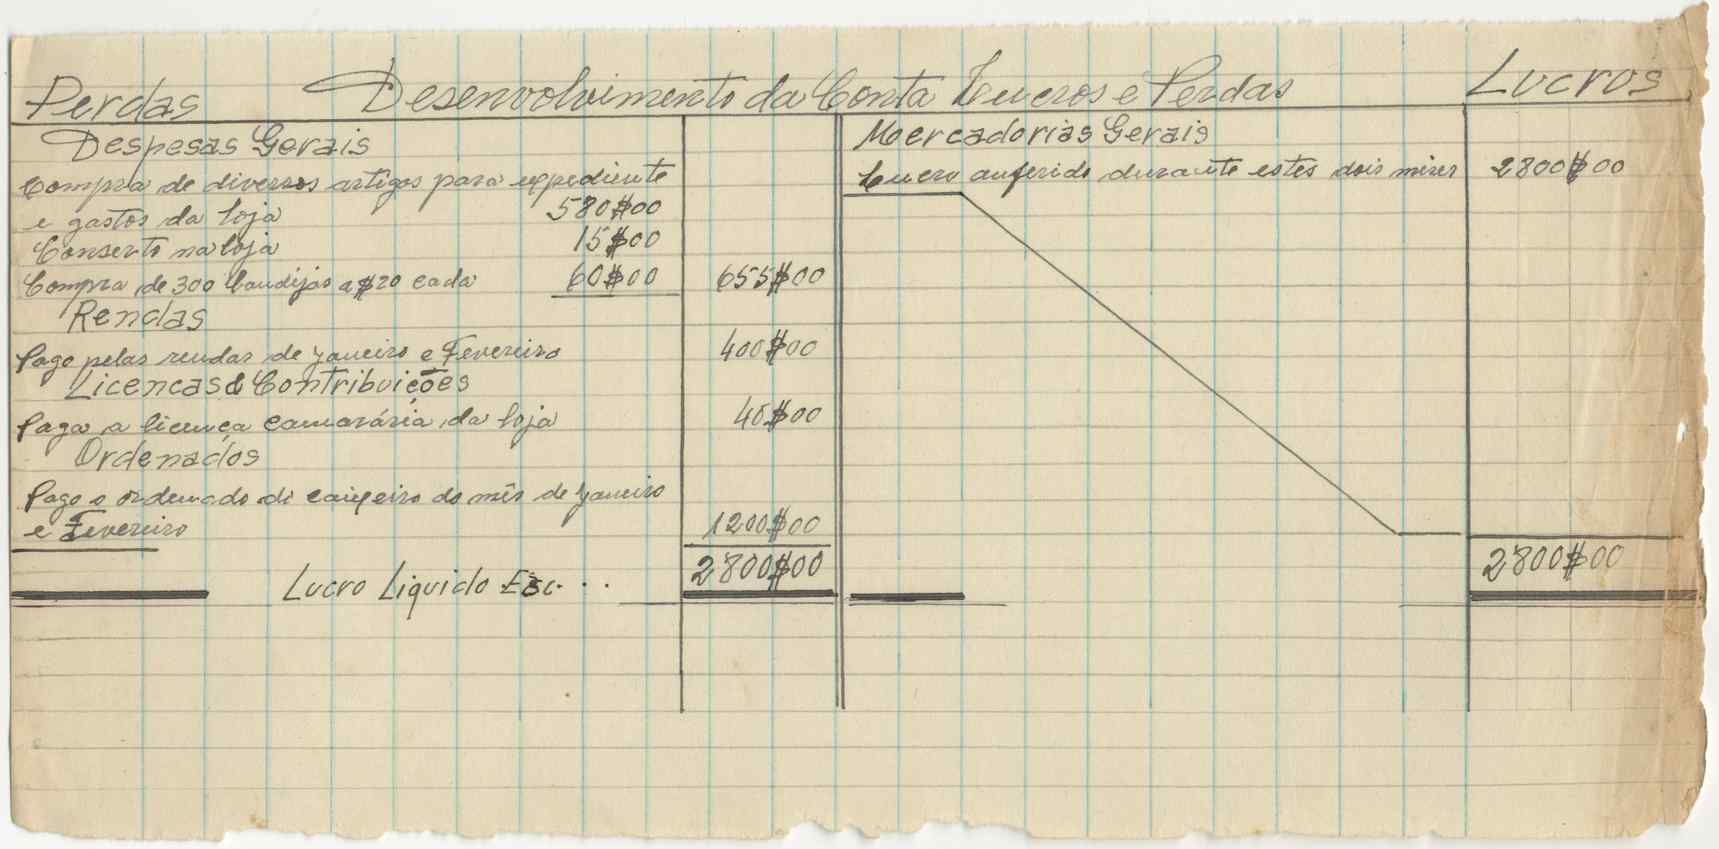 Perdas Desenvolvimento da Conta Lucros e Perdas Lucros
Despesas Gerais
Compra de diversos artigos para expediente
e gastos da loja 580$00
Conserto na loja 15$00
Compra de 300 bandijas a $20 cada 60$00 655$00
Rendas
Pago pelas rendas de Janeiro e Fevereiro 400$00
Licencas & Contribuições
Paga a licença camarária da loja 40$00
Ordenados
Pago o ordenado di caixeiro do mês de Janeiro
e Fevereiro 1200$00
Lucro Liquido Esc. . . 2800$00
Mercadorias Gerais
Lucro auferido durante estes dois mezes 2800$00
2800$00